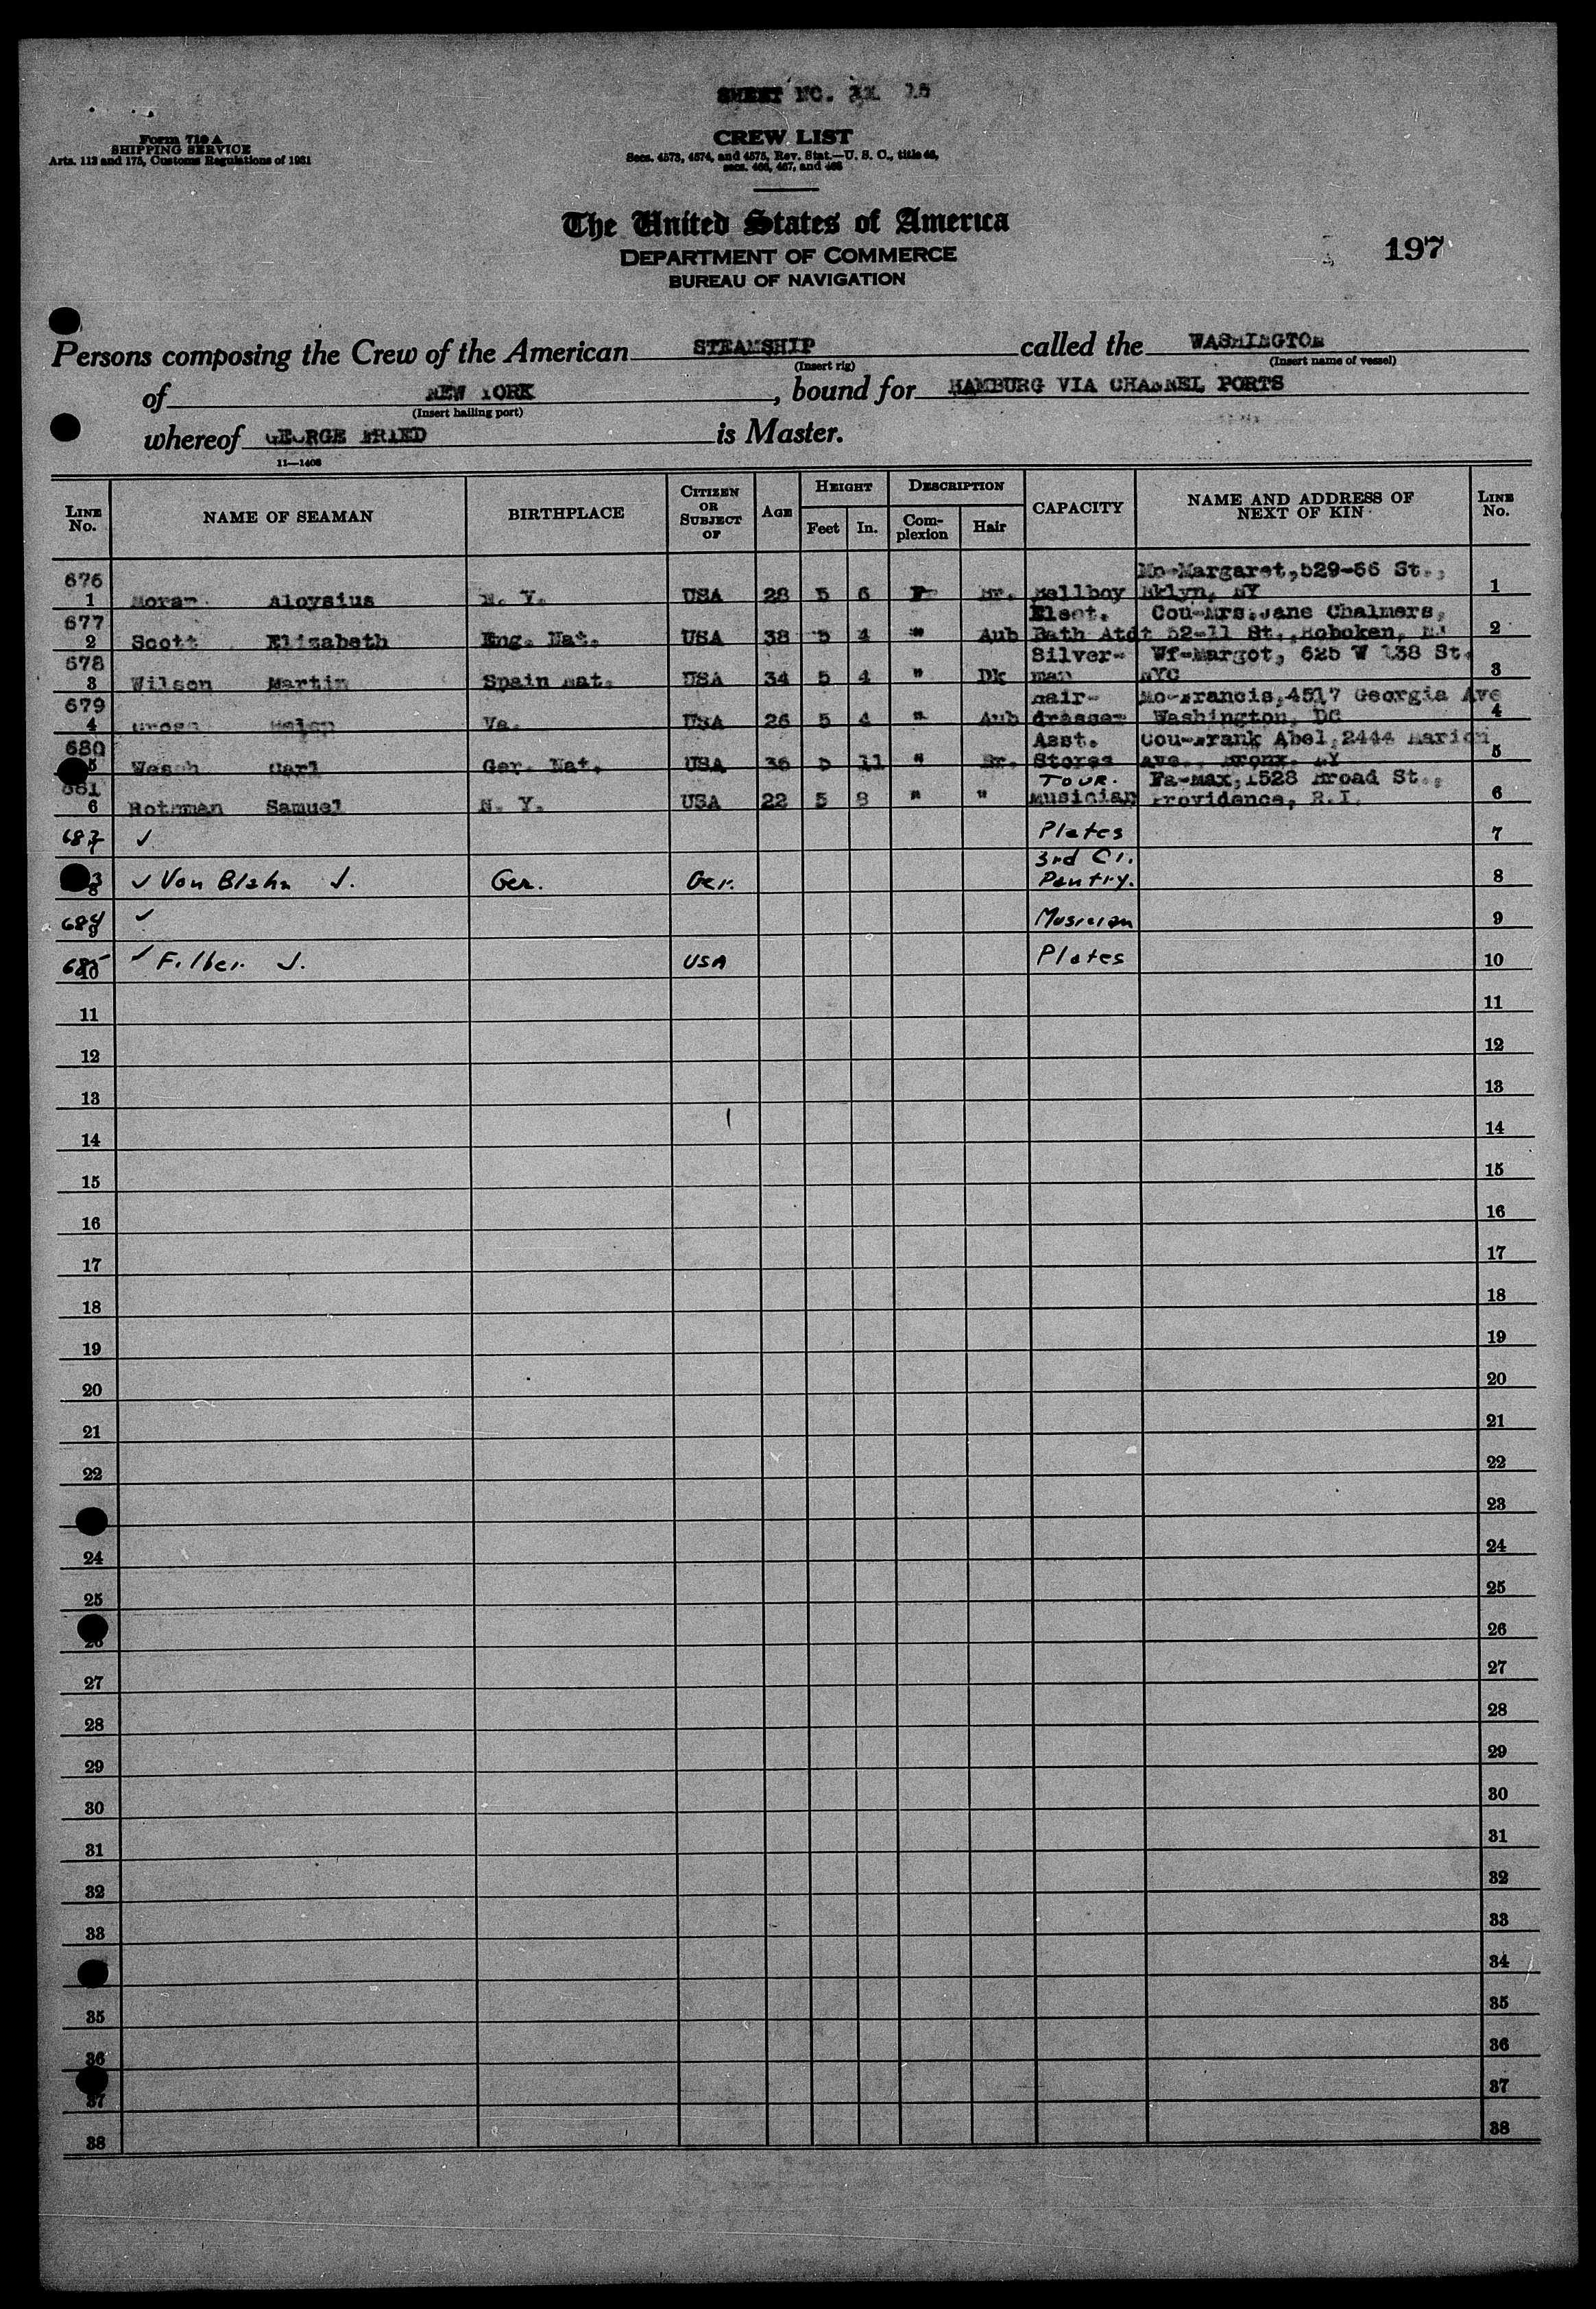 SHEET NO. XX 18
Form 710 A
SHIPPING SERVICE
Arts. 113 and 175, Customs Regulations of 1931
CREW LIST
Secs. 4573, 4574, and 4575, Rev. Stat.—U. S. C., title 46,
secs. 466, 467, and 468
The United States of America
DEPARTMENT OF COMMERCE
BUREAU OF NAVIGATION
197
Persons composing the Crew of the American STEAMSHIP called the WASHINGTON
(Insert rig) (Insert name of vessel)
of NEW YORK, bound for HAMBURG VIA CHANNEL PORTS
(Insert hailing port)
whereof GEORGE FRIED is Master.
11—1406
LINE No. NAME OF SEAMAN BIRTHPLACE CITIZEN OR SUBJECT OF AGE HEIGHT Feet In. DESCRIPTION Complexion Hair CAPACITY NAME AND ADDRESS OF NEXT OF KIN LINE No.
676 Mo-Margaret, 529-66 St.,
1 Moran Aloysius N. Y. USA 28 5 6 F Br. Bellboy Bklyn, NY 1
677 Elect. Cou-Mrs.Jane Chalmers,
2 Scott Elizabeth Eng. Nat. USA 38 5 4 " Aub Bath Atdt 52-11 St., Hoboken, NJ 2
678 Silver- Wf-Margot, 625 W 138 St.
3 Wilson Martin Spain Nat. USA 34 5 4 " Dk man NYC 3
679 Hair- Mo-Francis, 4517 Georgia Ave
4 Gross Helen Va. USA 26 5 4 " Aub dresser Washington, DC 4
680 Asst. Cou-Frank Abel, 2444 Marion
5 Wesch Carl Ger. Nat. USA 36 5 11 " Br. Stores Ave., Bronx, NY 5
681 TOUR. Fa-Max, 1528 Broad St.,
6 Rothman Samuel N. Y. USA 22 5 8 " " Musician Providence, R.I. 6
682 7 ✓ Plates 7
3rd Cl.
3 8 ✓ Von Blahn J. Ger. Ger. Pantry. 8
684 9 ✓ Musician 9
685 10 ✓ Filber J. USA Plates 10
11 11
12 12
13 13
14 14
15 15
16 16
17 17
18 18
19 19
20 20
21 21
22 22
23
24 24
25 25
26 26
27 27
28 28
29 29
30 30
31 31
32 32
33 33
34
35 35
36 36
37 37
38 38